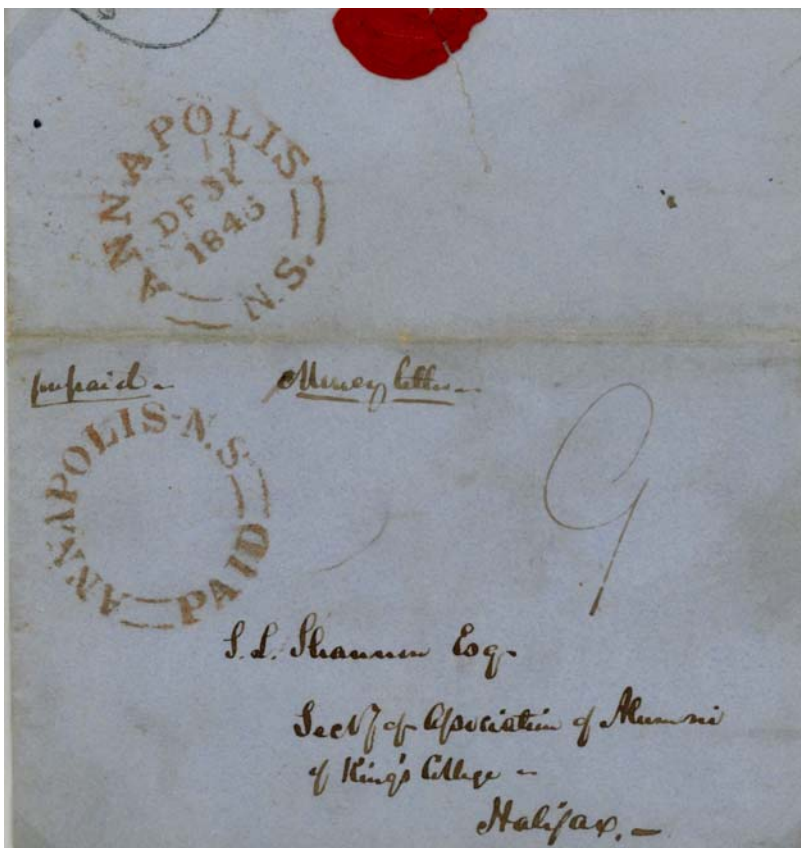 ANNAPOLIS.
DE 31
1846
N.S.
prepaid - Money letter -
ANNAPOLIS-N.S.
PAID
9
S. L. Shannon Esq.
Secty of Association of Alumni
of King's College -
Halifax. -